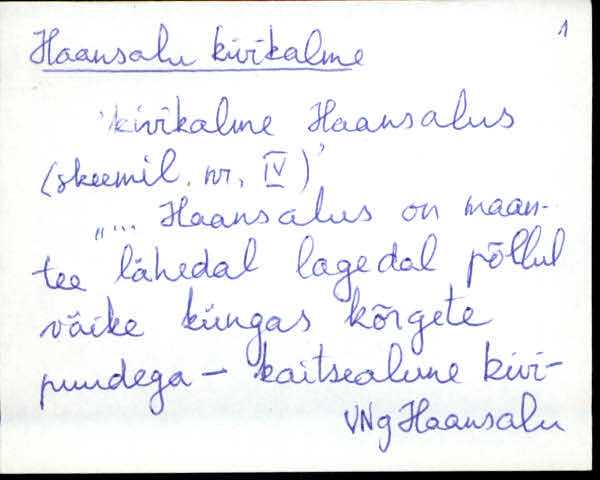 1
Haansalu kivikalme
'kivikalme Haansalus
(skeemil. nr, IV)'
"... Haansalus on maan-
tee lähedal lagedal põllul
väike küngas kõrgete
puudega – kaitsealune kivi-
VNg Haansalu